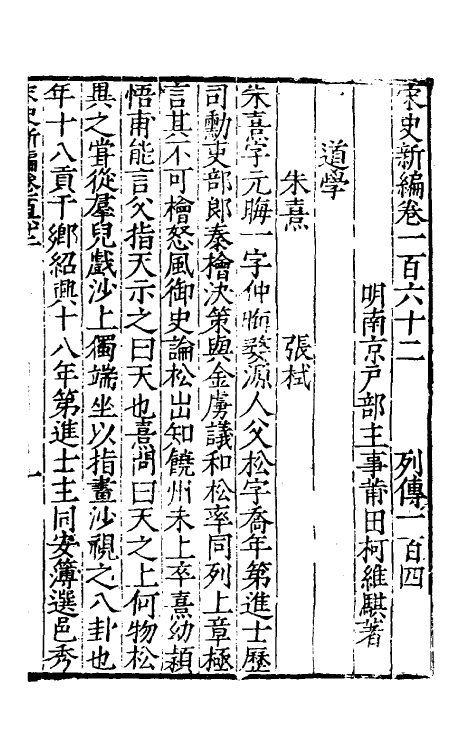 宋史新編卷一百六十二　　列傳一百四
明南京戶部主事莆田柯維騏著
道學
朱熹　　張栻
朱熹字元晦一字仲晦婺源人父松字喬年第進士歷
司勳吏部郎秦檜決策與金虜議和松率同列上章極
言其不可檜怒風御史論松出知饒州未上卒熹幼穎
悟甫能言父指天示之曰天也熹問曰天之上何物松
異之嘗從羣兒戲沙上獨端坐以指畫沙視之八卦也
年十八貢于鄉紹興十八年第進士主同安簿選邑秀
宋史新編卷
一